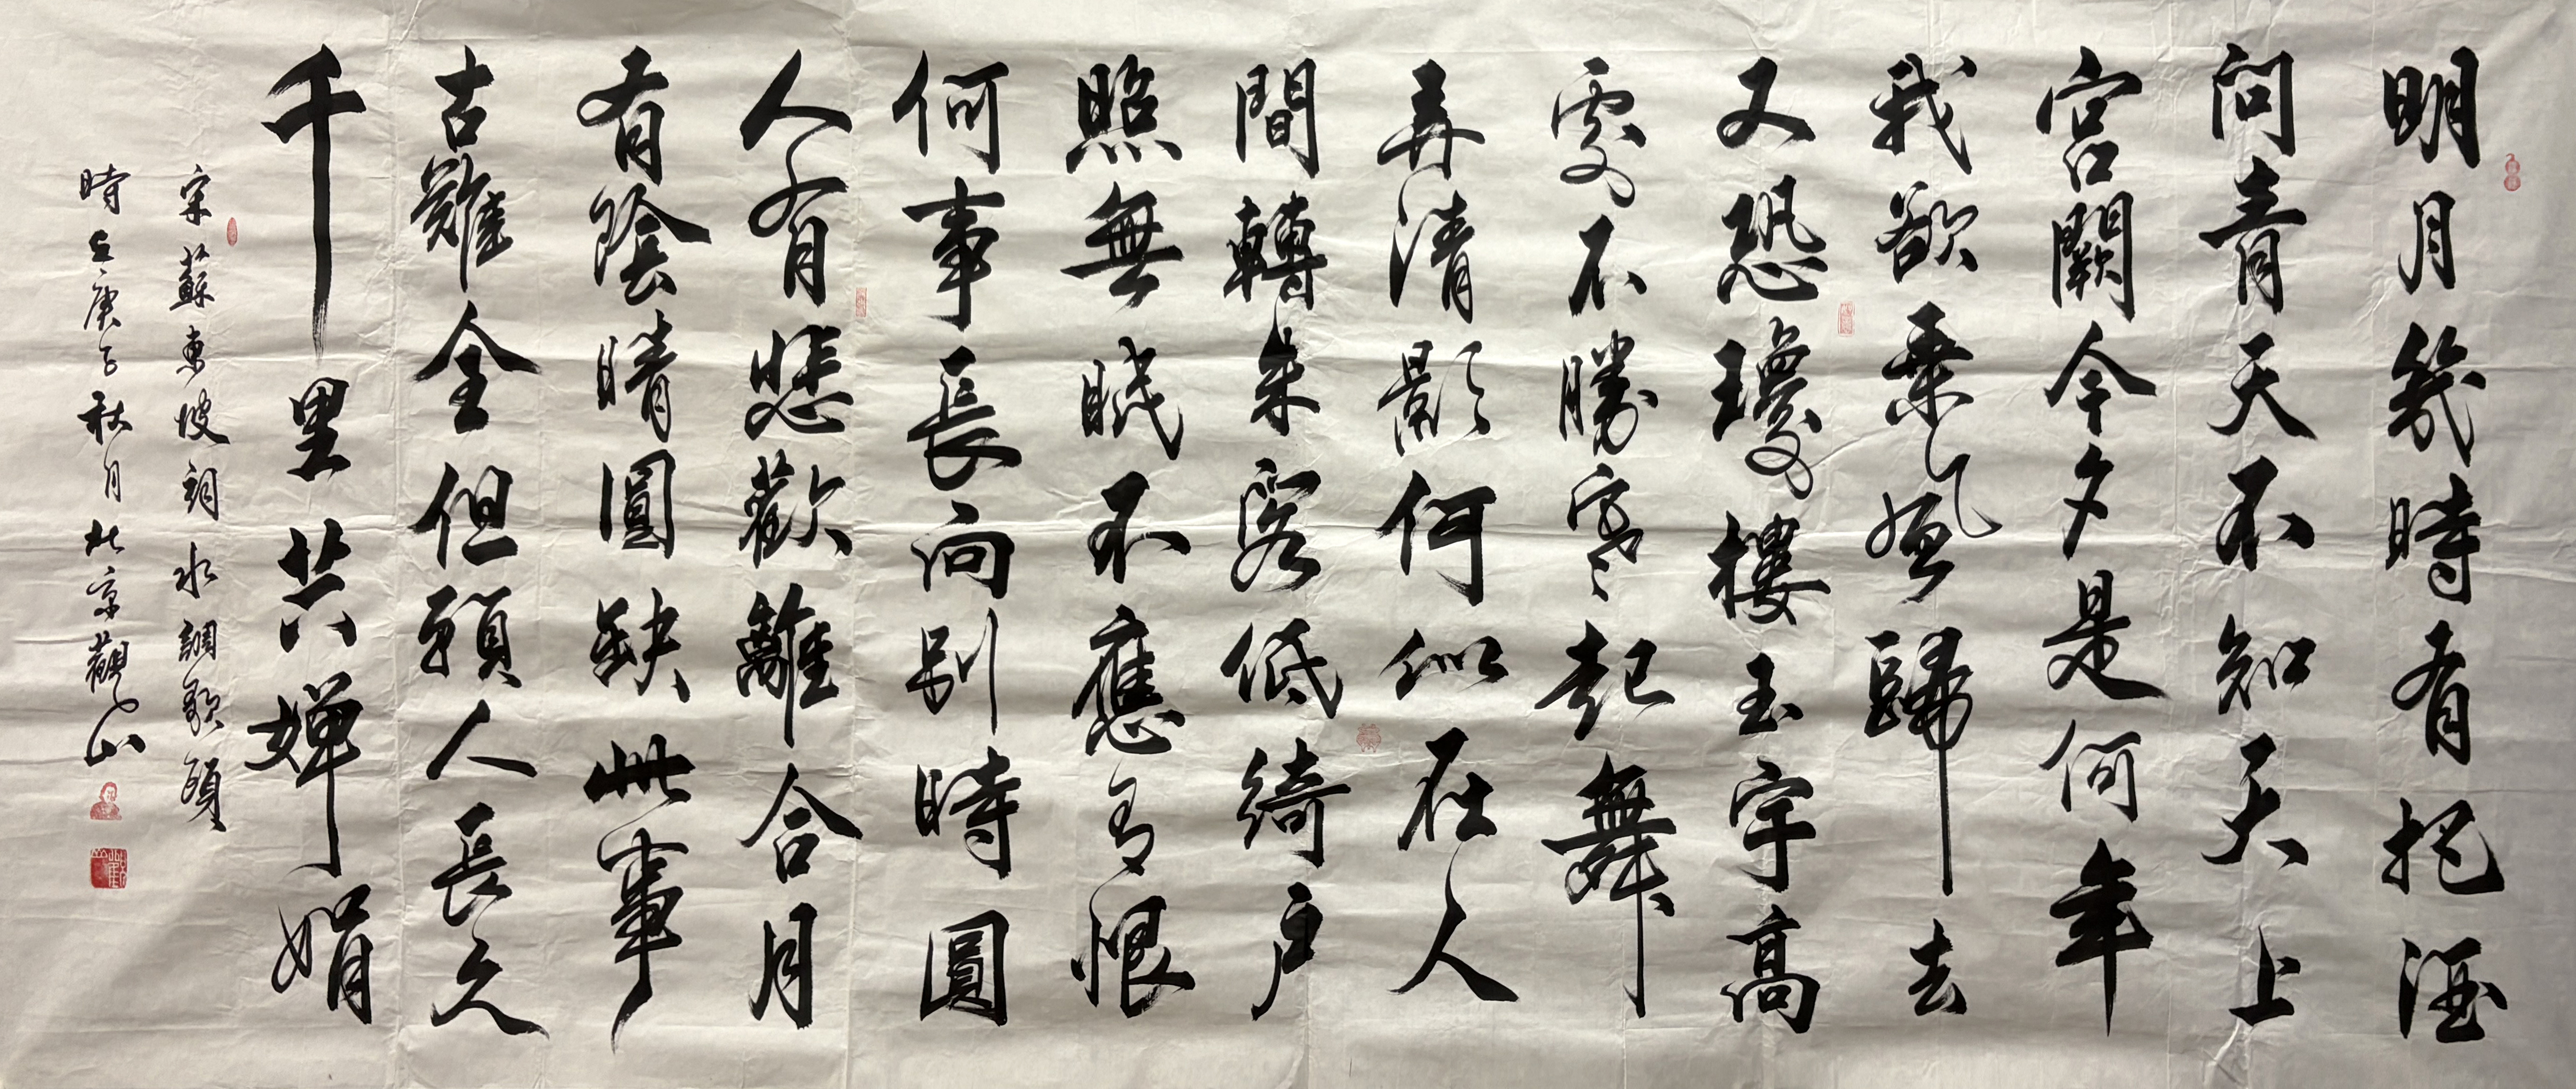 明月幾時有把酒
問青天不知天上
宮闕今夕是何年
我欲乘風歸去
又恐瓊樓玉宇高
處不勝寒起舞
弄清影何似在人
間轉朱閣低綺户
照無眠不應有恨
何事長向别時圓
人有悲歡離合月
有陰晴圓缺此事
古難全但願人長久
千里共嬋娟
宋蘇東坡詞水調歌頭
時在庚子秋月北京觀山